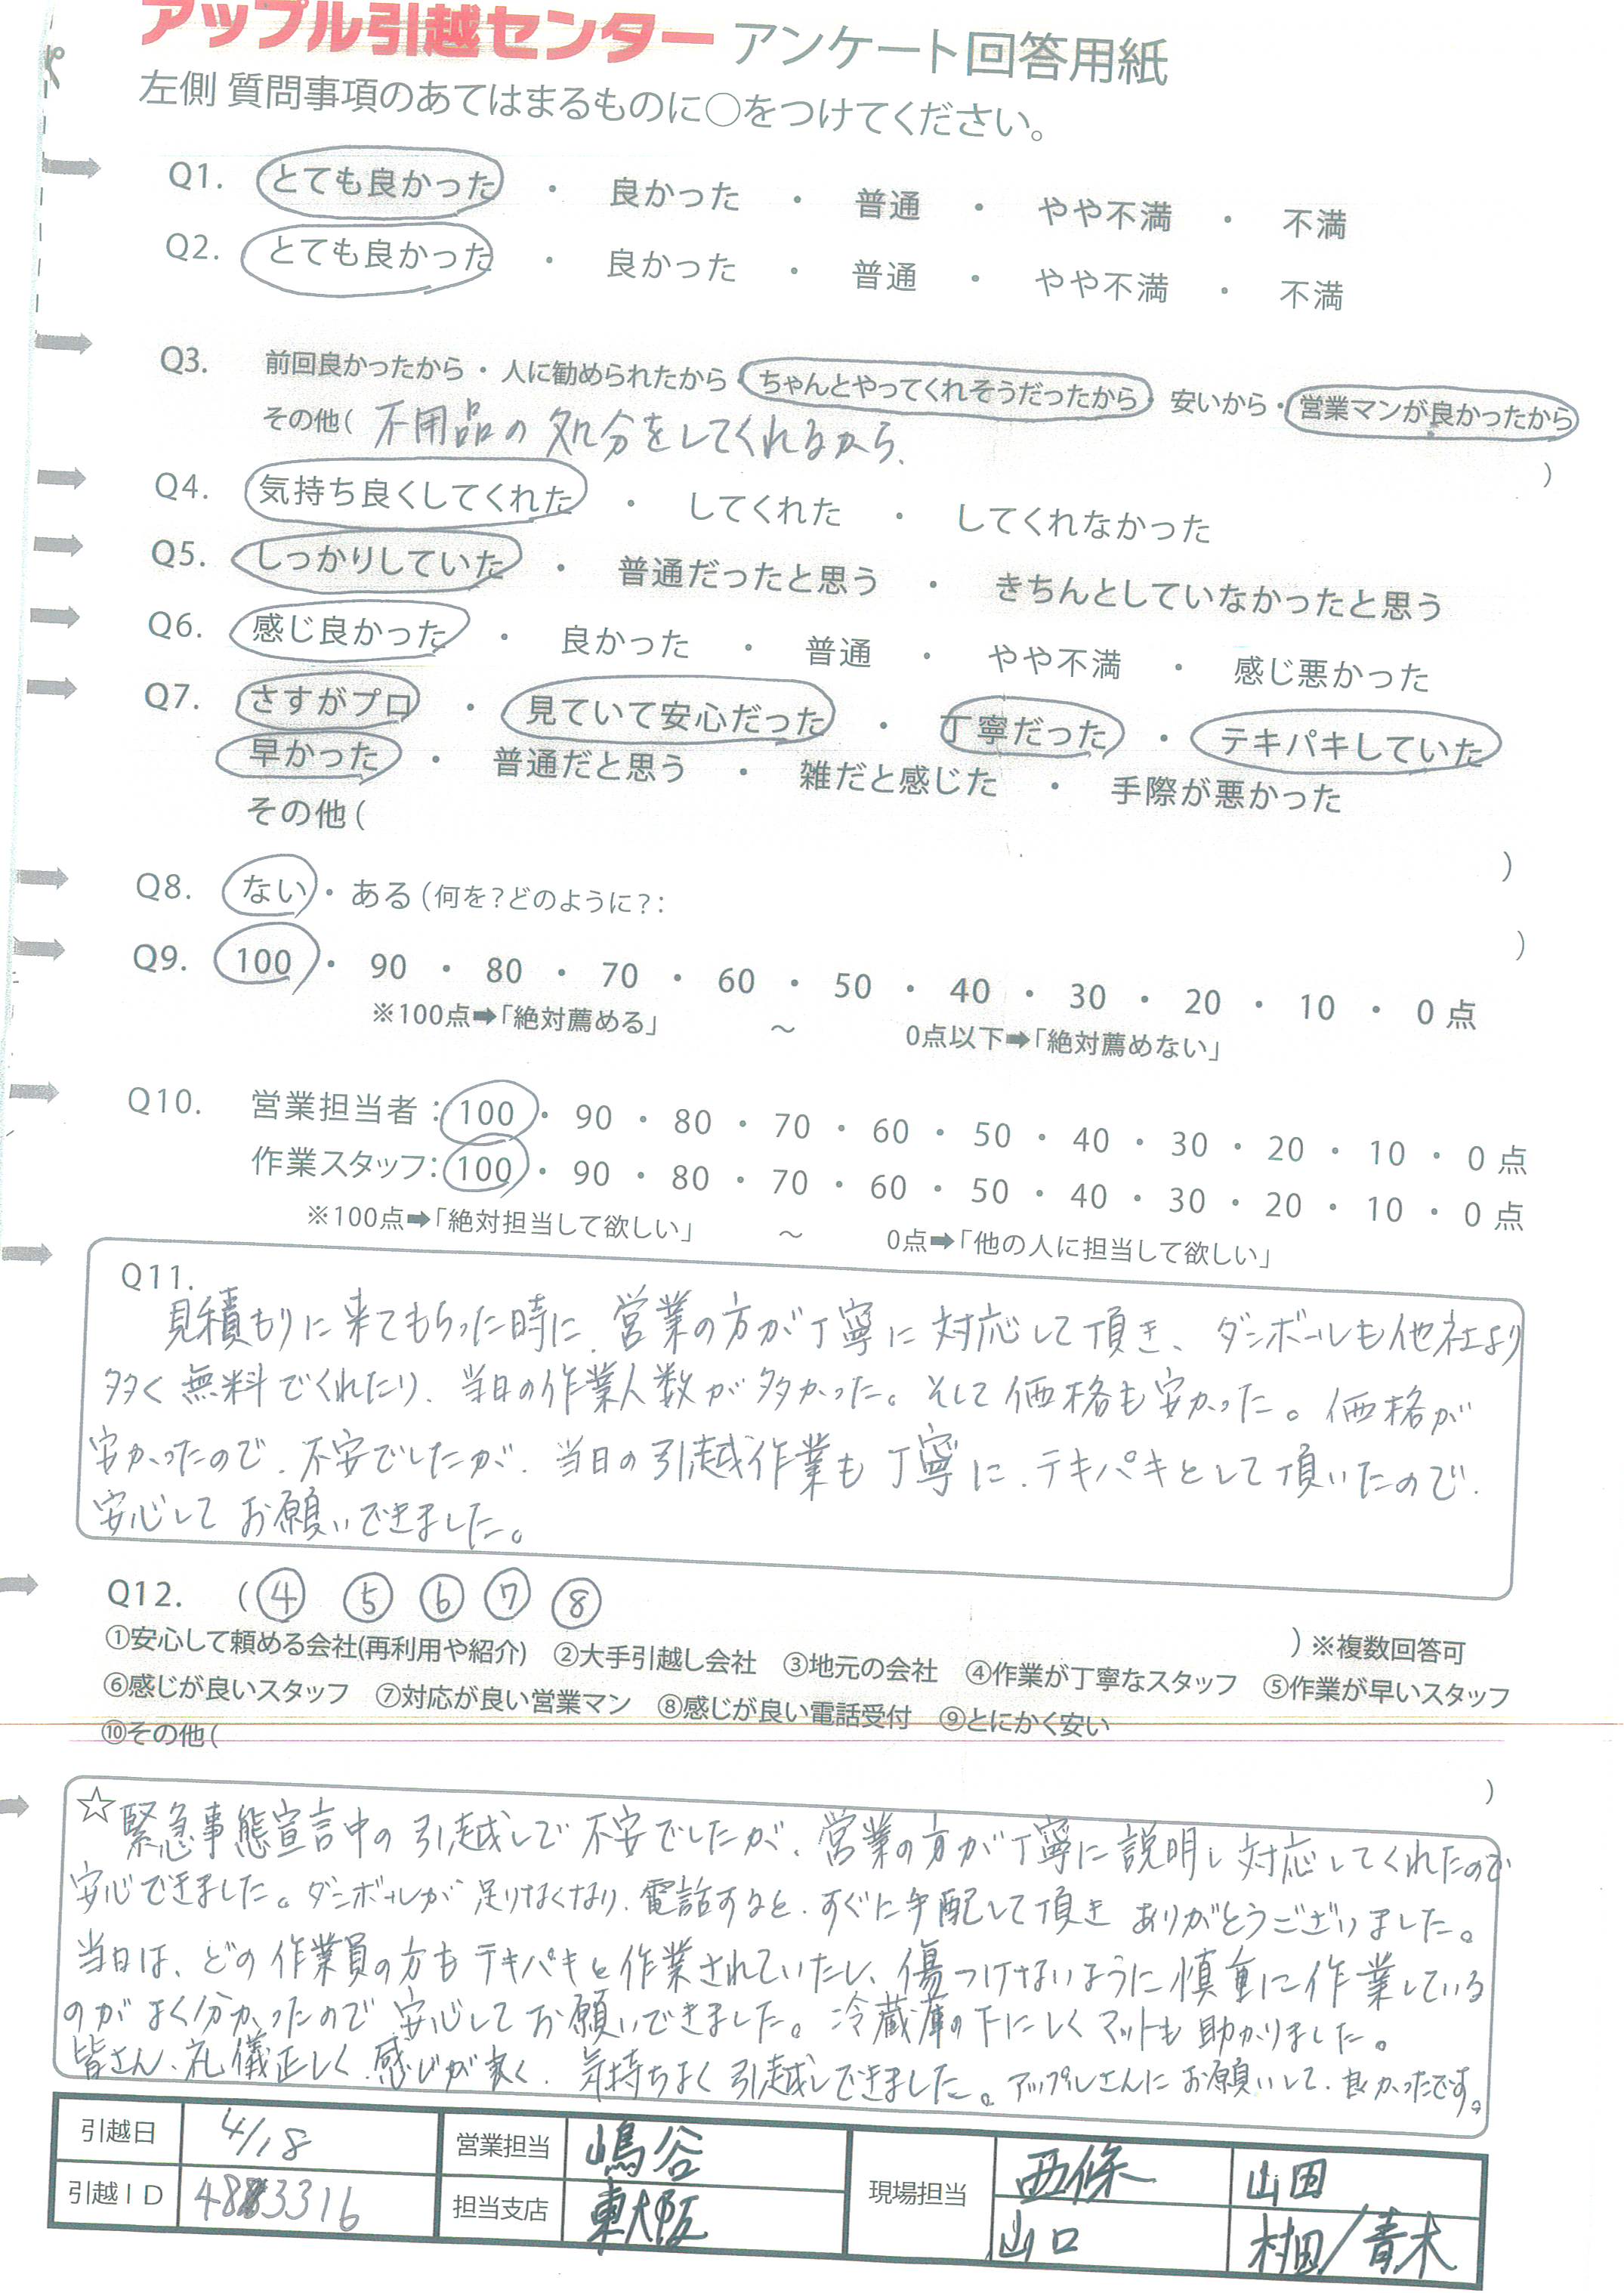 アップル引越センター アンケート回答用紙
左側 質問事項のあてはまるものに○をつけてください。
Q1. とても良かった ・ 良かった ・ 普通 ・ やや不満 ・ 不満
Q2. とても良かった ・ 良かった ・ 普通 ・ やや不満 ・ 不満
Q3. 前回良かったから・人に勧められたから・ちゃんとやってくれそうだったから・安いから・営業マンが良かったから
その他( 不用品の処分をしてくれるから、 )
Q4. 気持ち良くしてくれた ・ してくれた ・ してくれなかった
Q5. しっかりしていた ・ 普通だったと思う ・ きちんとしていなかったと思う
Q6. 感じ良かった ・ 良かった ・ 普通 ・ やや不満 ・ 感じ悪かった
Q7. さすがプロ ・ 見ていて安心だった ・ 丁寧だった ・ テキパキしていた
早かった ・ 普通だと思う ・ 雑だと感じた ・ 手際が悪かった
その他( )
Q8. ない・ある(何を?どのように?: )
Q9. 100・90・80・70・60・50・40・30・20・10・0点
※100点➡「絶対薦める」 ～ 0点以下➡「絶対薦めない」
Q10. 営業担当者:100・90・80・70・60・50・40・30・20・10・0点
作業スタッフ:100・90・80・70・60・50・40・30・20・10・0点
※100点➡「絶対担当して欲しい」 ～ 0点➡「他の人に担当して欲しい」
Q11.
見積もりに来てもらった時に、営業の方が丁寧に対応して頂き、ダンボールも他社より
多く無料でくれたり、当日の作業人数が多かった。そして価格も安かった。価格が
安かったので、不安でしたが、当日の引越作業も丁寧に、テキパキとして頂いたので、
安心してお願いできました。
Q12. (④ ⑤ ⑥ ⑦ ⑧ )※複数回答可
①安心して頼める会社(再利用や紹介) ②大手引越し会社 ③地元の会社 ④作業が丁寧なスタッフ ⑤作業が早いスタッフ
⑥感じが良いスタッフ ⑦対応が良い営業マン ⑧感じが良い電話受付 ⑨とにかく安い
⑩その他( )
☆緊急事態宣言中の引越しで不安でしたが、営業の方が丁寧に説明し対応してくれたので
安心できました。ダンボールが足りなくなり、電話すると、すぐに手配して頂きありがとうございました。
当日は、どの作業員の方もテキパキと作業されていたし、傷つけないように慎重に作業している
のがよく分かったので安心してお願いできました。冷蔵庫の下にしくマットも助かりました。
皆さん、礼儀正しく、感じが良く、気持ちよく引越しできました。アップルさんにお願いして、良かったです。
引越日 4/18 営業担当 嶋谷 現場担当 西條 山田
引越ID 4883316 担当支店 東大阪 山口 村田/青木